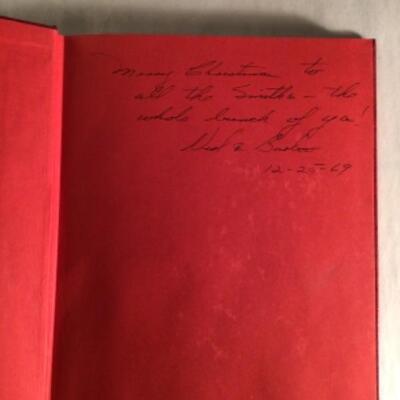 Merry Christmas to
all the Smiths - the
whole bunch of ya!
&
12-25-69